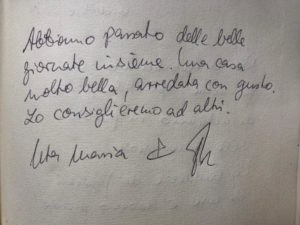 Abbiamo passato delle belle
giornate insieme. Una casa
molto bella, arredata con gusto.
Lo consiglieremo ad altri.
Uta Maria &